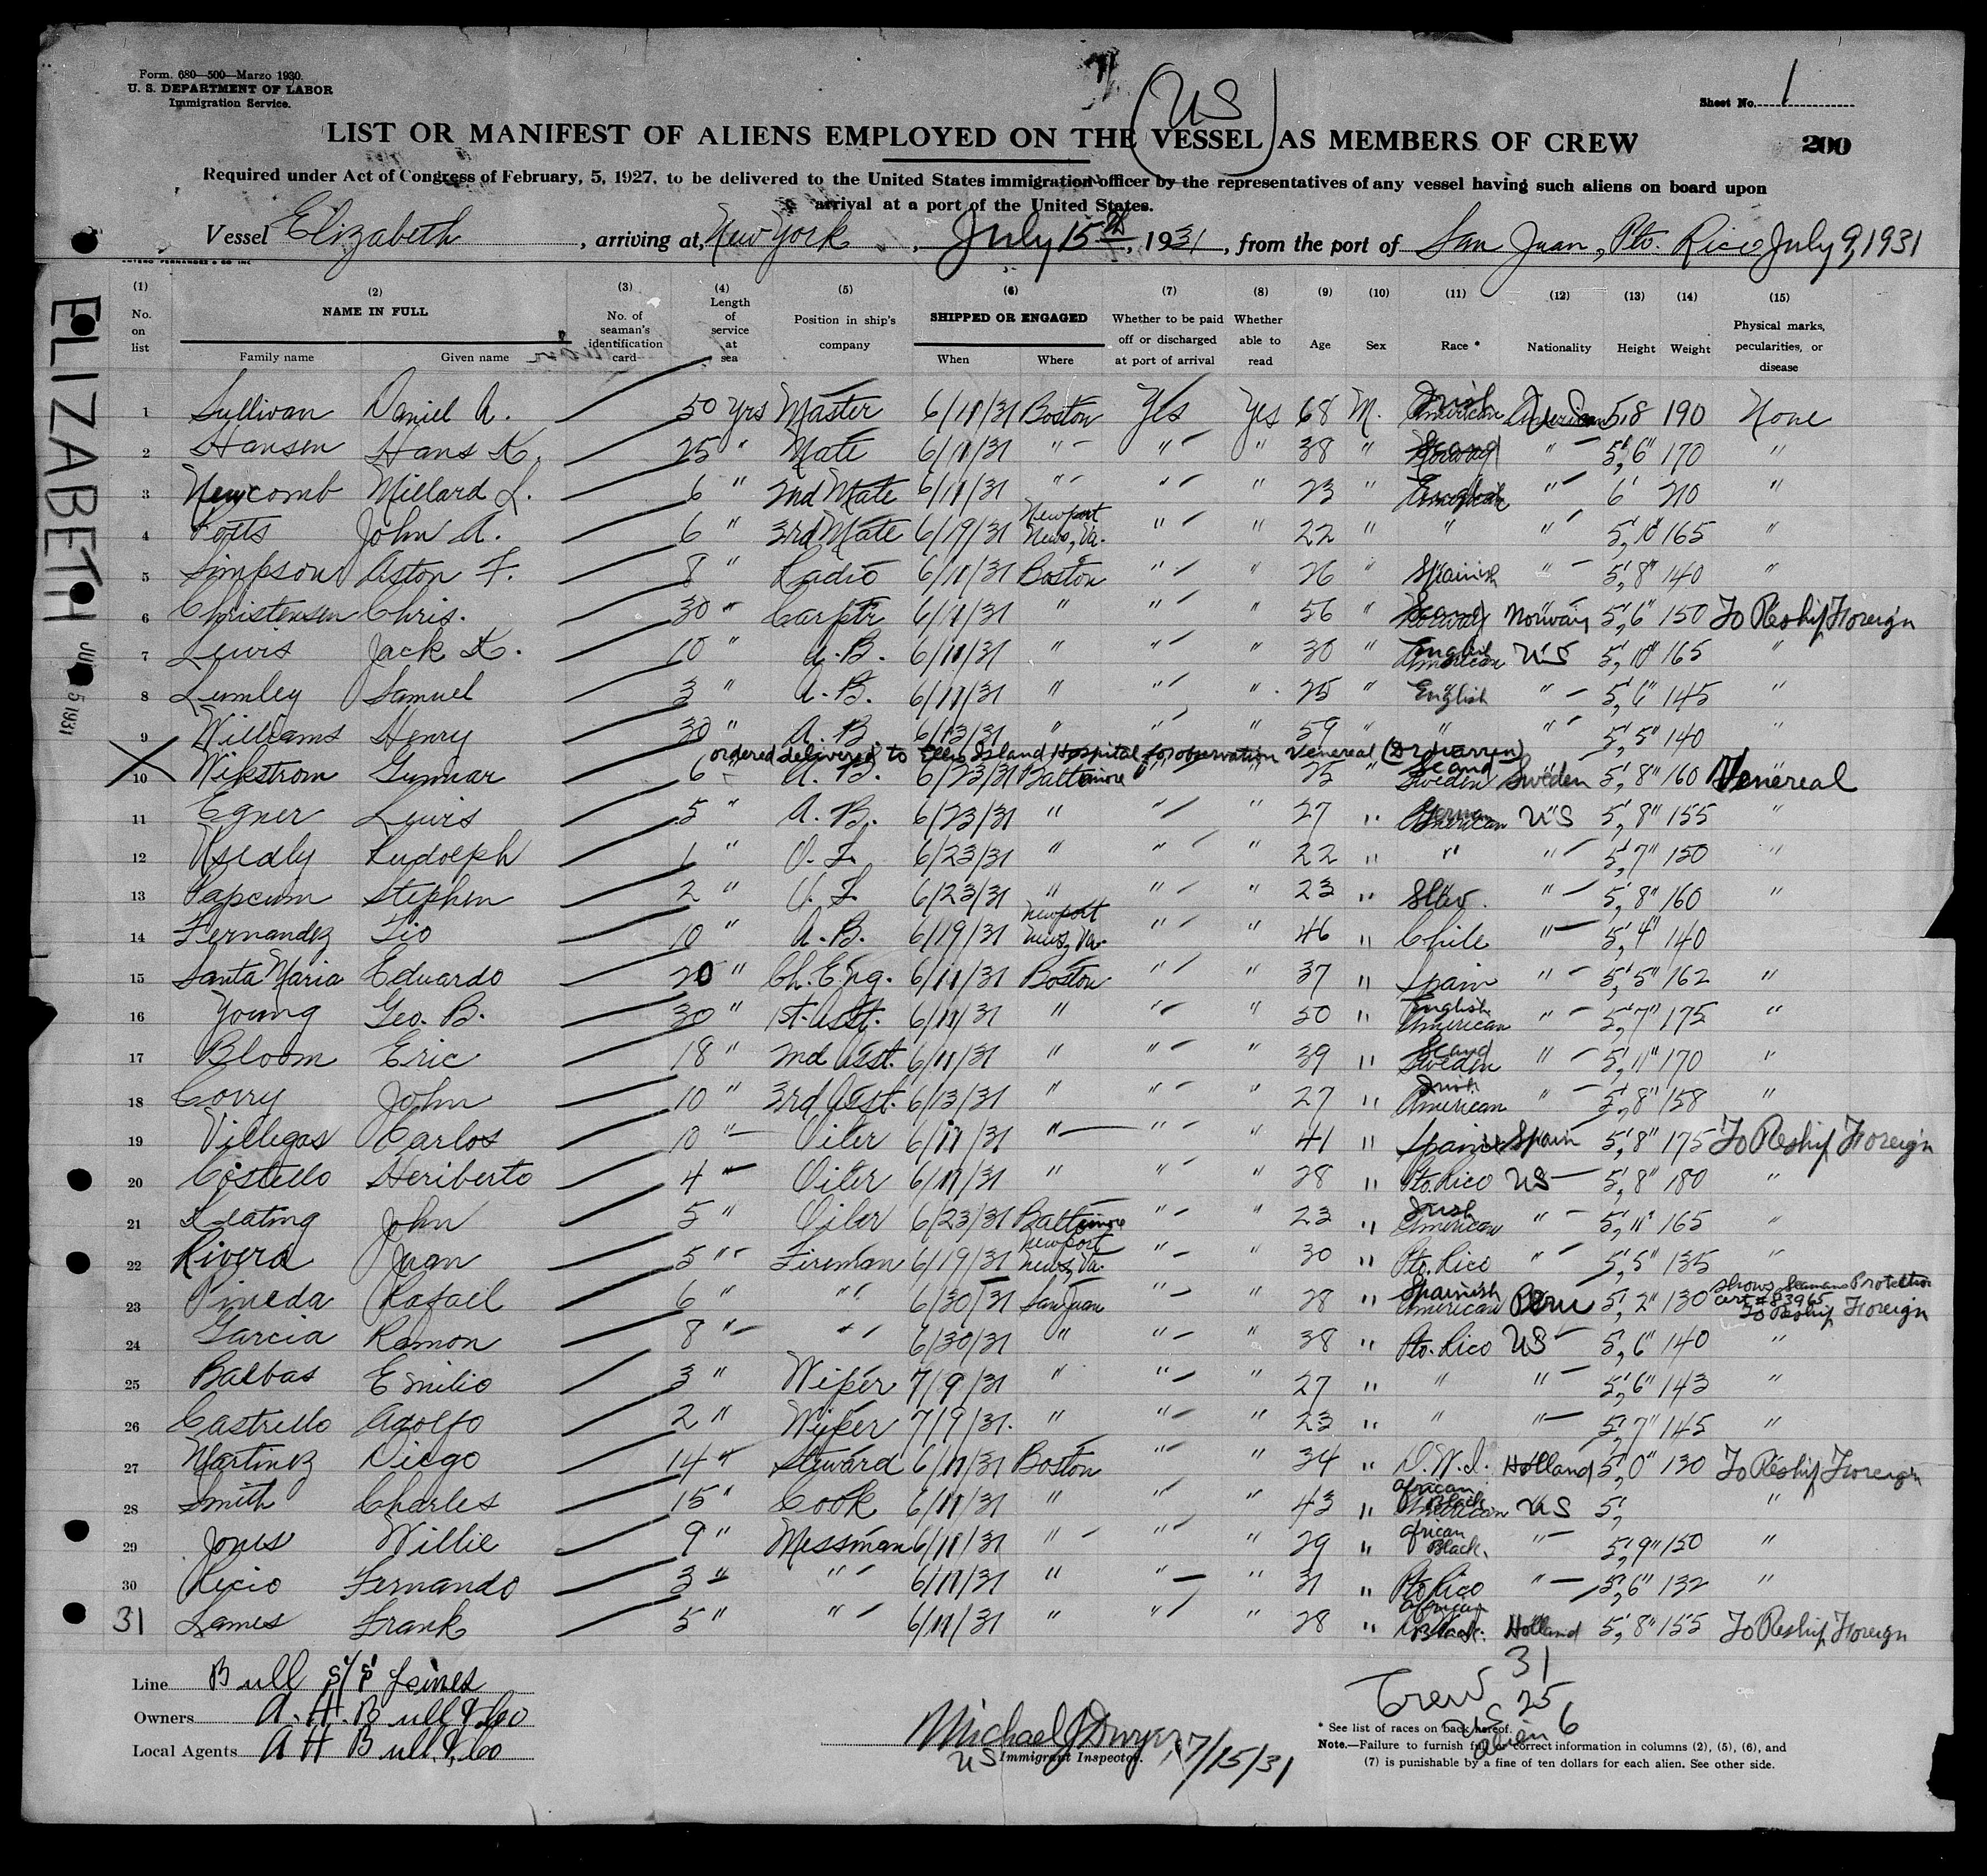 Form. 680—500—Marzo 1930.
U. S. DEPARTMENT OF LABOR
Immigration Service.
(US)
Sheet No. 1
LIST OR MANIFEST OF ALIENS EMPLOYED ON THE VESSEL AS MEMBERS OF CREW
200
Required under Act of Congress of February, 5, 1927, to be delivered to the United States immigration officer by the representatives of any vessel having such aliens on board upon
arrival at a port of the United States.
Vessel Elizabeth, arriving at, New York, July 15th, 1931, from the port of San Juan, Pto. Rico July 9, 1931
ELIZABETH
(1) No. on list
(2) NAME IN FULL Family name Given name
(3) No. of seaman's identification card
(4) Length of service at sea
(5) Position in ship's company
(6) SHIPPED OR ENGAGED When Where
(7) Whether to be paid off or discharged at port of arrival
(8) Whether able to read
(9) Age
(10) Sex
(11) Race *
(12) Nationality
(13) Height
(14) Weight
(15) Physical marks, pecularities, or disease
1 Sullivan Daniel A. 50 yrs Master 6/11/31 Boston Yes Yes 68 M. Irish American American 5,8 190 None
2 Hansen Hans K. 25 " Mate 6/11/31 " " " 38 " Scand " 5,'6" 170 "
3 Newcomb Millard L. 6 " 2nd Mate 6/11/31 " " " 23 " English " 6' 210 "
4 Potts John A. 6 " 3rd Mate 6/19/31 Newport News, Va. " " 22 " " " 5,'10" 165 "
5 Simpson Aston F. 8 " Radio 6/11/31 Boston " " 26 " Spainish " 5,'8" 140 "
6 Christensen Chris. 30 " Carptr 6/11/31 " " " 56 " Scand Norway 5,'6" 150 To Reship Foreign
7 Lewis Jack K. 10 " A.B. 6/11/31 " " " 30 " English American US 5,'10" 165 "
8 Lumley Samuel 3 " A.B. 6/11/31 " " " 25 " English " 5,'6" 145 "
9 Williams Henry 30 " A.B. 6/13/31 " " " 59 " " " 5,'5" 140 "
ordered delivered to Ellis Island Hospital for observation Venereal (Dr Warren)
X 10 Wikstrom Gunnar 6 " A.B. 6/23/31 Baltimore " " 25 " Scand Sweden Sweden 5,'8" 160 Venereal
11 Egner Lewis 5 " A.B. 6/23/31 " " " 27 " German American US 5,'8" 155 "
12 Rudolph 1 " O.S. 6/23/31 " " " 22 " " " 5,'7" 150 "
13 Papcum Stephen 2 " O.S. 6/23/31 " " " 23 " Slav. " 5,'8" 160 "
14 Fernandez Tio 10 " A.B. 6/19/31 Newport News, Va. " " 46 " Chile " 5,'4" 140
15 Santa Maria Eduardo 20 " Ch. Eng. 6/11/31 Boston " " 37 " Spain " 5,'5" 162 "
16 Young Geo. B. 30 " 1st. Asst. 6/11/31 " " " 50 " English American " 5,'7" 175 "
17 Bloom Eric 18 " 2nd Asst. 6/11/31 " " " 39 " Scand Sweden " 5,'11" 170 "
18 Corry John 10 " 3rd Asst. 6/13/31 " " " 27 " Irish American " 5,'8" 158 "
19 Villegas Carlos 10 " Oiler 6/11/31 " " " 41 " Spain Spain 5,'8" 175 To Reship Foreign
20 Costello Heriberto 4 " Oiler 6/11/31 " " " 28 " Pto. Rico US 5,'8" 180 "
21 Keating John 5 " Oiler 6/23/31 Baltimore " " 23 " Irish American " 5,'11" 165 "
22 Rivera Juan 5 " Fireman 6/19/31 Newport News, Va. " " 30 " Pto. Rico " 5,'5" 135 "
23 Pineda Rafael 6 " " 6/30/31 San Juan " " 28 " Spainish American Peru 5,'2" 130 Shows Seamans Protection cert # 83965 To Reship Foreign
24 Garcia Ramon 8 " " 6/30/31 " " " 38 " Pto. Rico US 5,'6" 140 "
25 Balbas Emilio 3 " Wiper 7/9/31 " " " 27 " " " 5,'6" 143 "
26 Castrello Adolfo 2 " Wiper 7/9/31. " " " 23 " " " 5,'7" 145 "
27 Martinez Diego 14 " Steward 6/11/31 Boston " " 34 " D.W.I. Holland 5,'0" 130 To Reship Foreign
28 Smith Charles 15 " Cook 6/11/31 " " " 43 " African Black American US 5,' "
29 Jones Willie 9 " Messman 6/11/31 " " " 29 " African Black. " 5,'9" 150 "
30 Recio Fernando 3 " " 6/11/31 " " " 31 " Pto Rico " 5,'6" 132 "
31 James Frank 5 " " 6/11/31 " " " 28 " African Black. Holland 5,'8" 155 To Reship Foreign
Line Bull S/S Lines
Owners A. H. Bull & Co
Local Agents A H Bull & Co
Michael J Dwyer, 7/15/31
US Immigrant Inspector.
Crew 31
US 25
Alien 6
* See list of races on back hereof.
Note.—Failure to furnish full or correct information in columns (2), (5), (6), and
(7) is punishable by a fine of ten dollars for each alien. See other side.